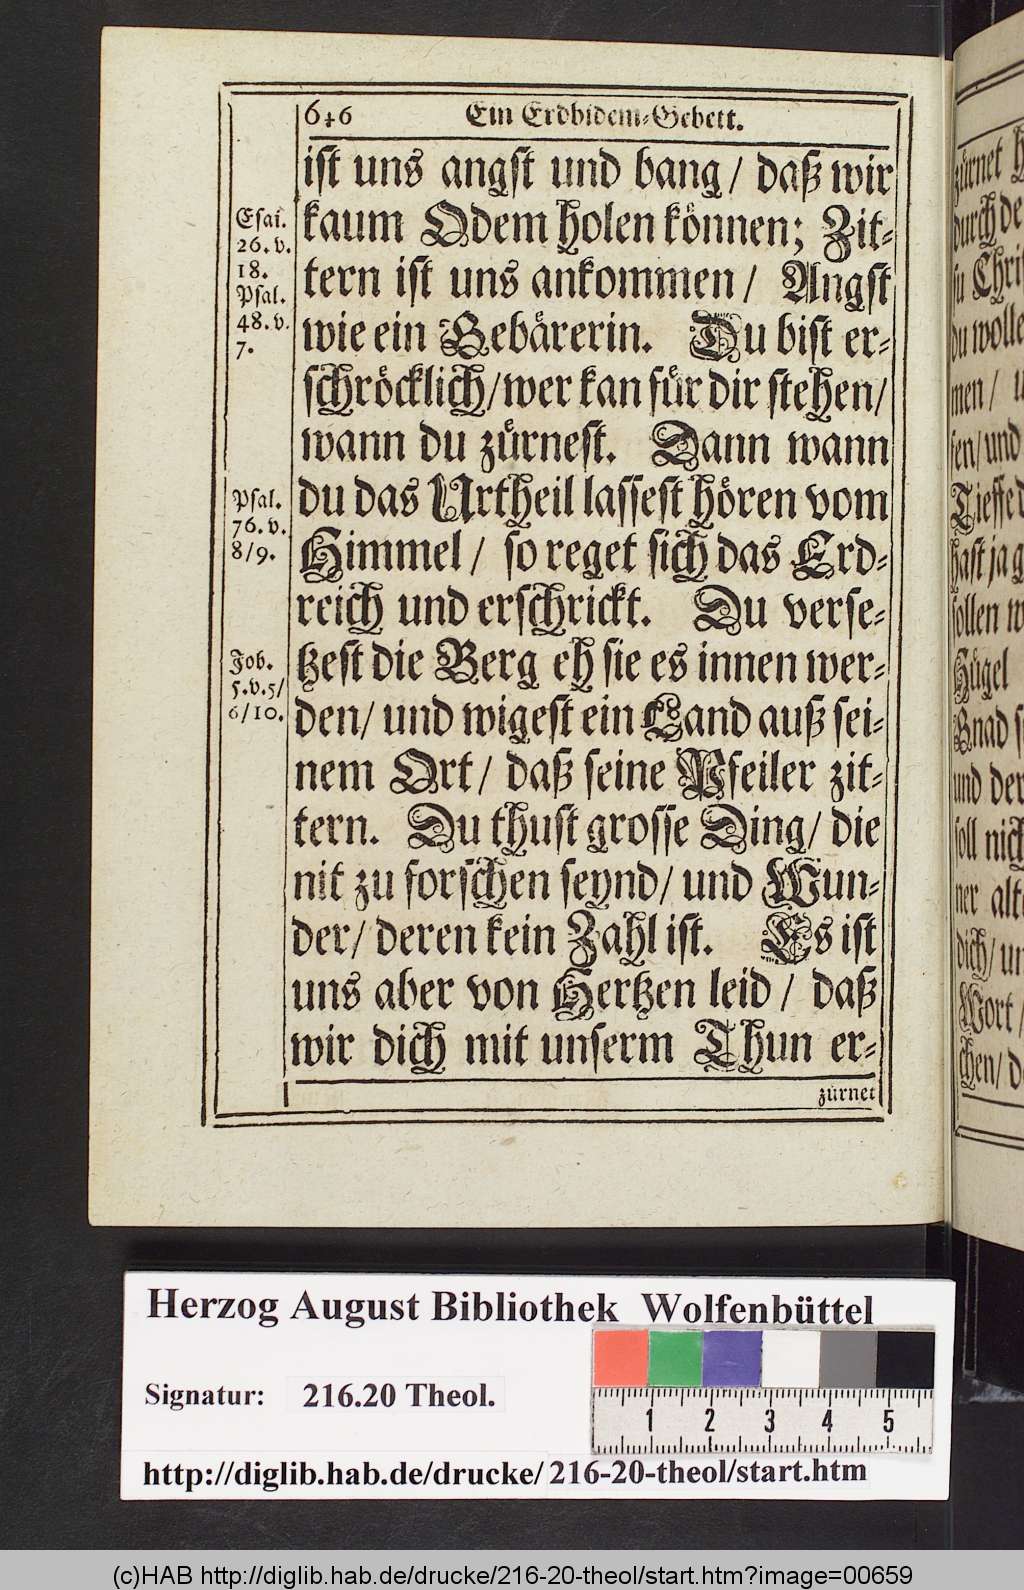 646 Ein Erdbidem-Gebett.
ist uns angst und bang / daß wir
kaum Odem holen können; Zit-
tern ist uns ankommen / Angst
wie ein Gebärerin. Du bist er-
schröcklich / wer kan für dir stehen /
wann du zürnest. Dann wann
du das Urtheil lassest hören vom
Himmel / so reget sich das Erd-
reich und erschrickt. Du verse-
tzest die Berg eh sie es innen wer-
den / und wigest ein Land auß sei-
nem Ort / daß seine Pfeiler zit-
tern. Du thust grosse Ding / die
nit zu forschen seynd / und Wun-
der / deren kein Zahl ist. Es ist
uns aber von Hertzen leid / daß
wir dich mit unserm Thun er-
zürnet
Esai.
26. v.
18.
Psal.
48. v.
7.
Psal.
76. v.
8/9.
Job.
5. v. 5/
6/10.
zürnet
durch de
su Chris
du wolle
men /
fen / und
Tieffe
hast ja g
sollen w
Hügel
Gnad s
und der
soll nich
ner alt
dich / un
Wort /
chen / d
Herzog August Bibliothek Wolfenbüttel
Signatur: 216.20 Theol.
1 2 3 4 5
http://diglib.hab.de/drucke/216-20-theol/start.htm
(c)HAB http://diglib.hab.de/drucke/216-20-theol/start.htm?image=00659